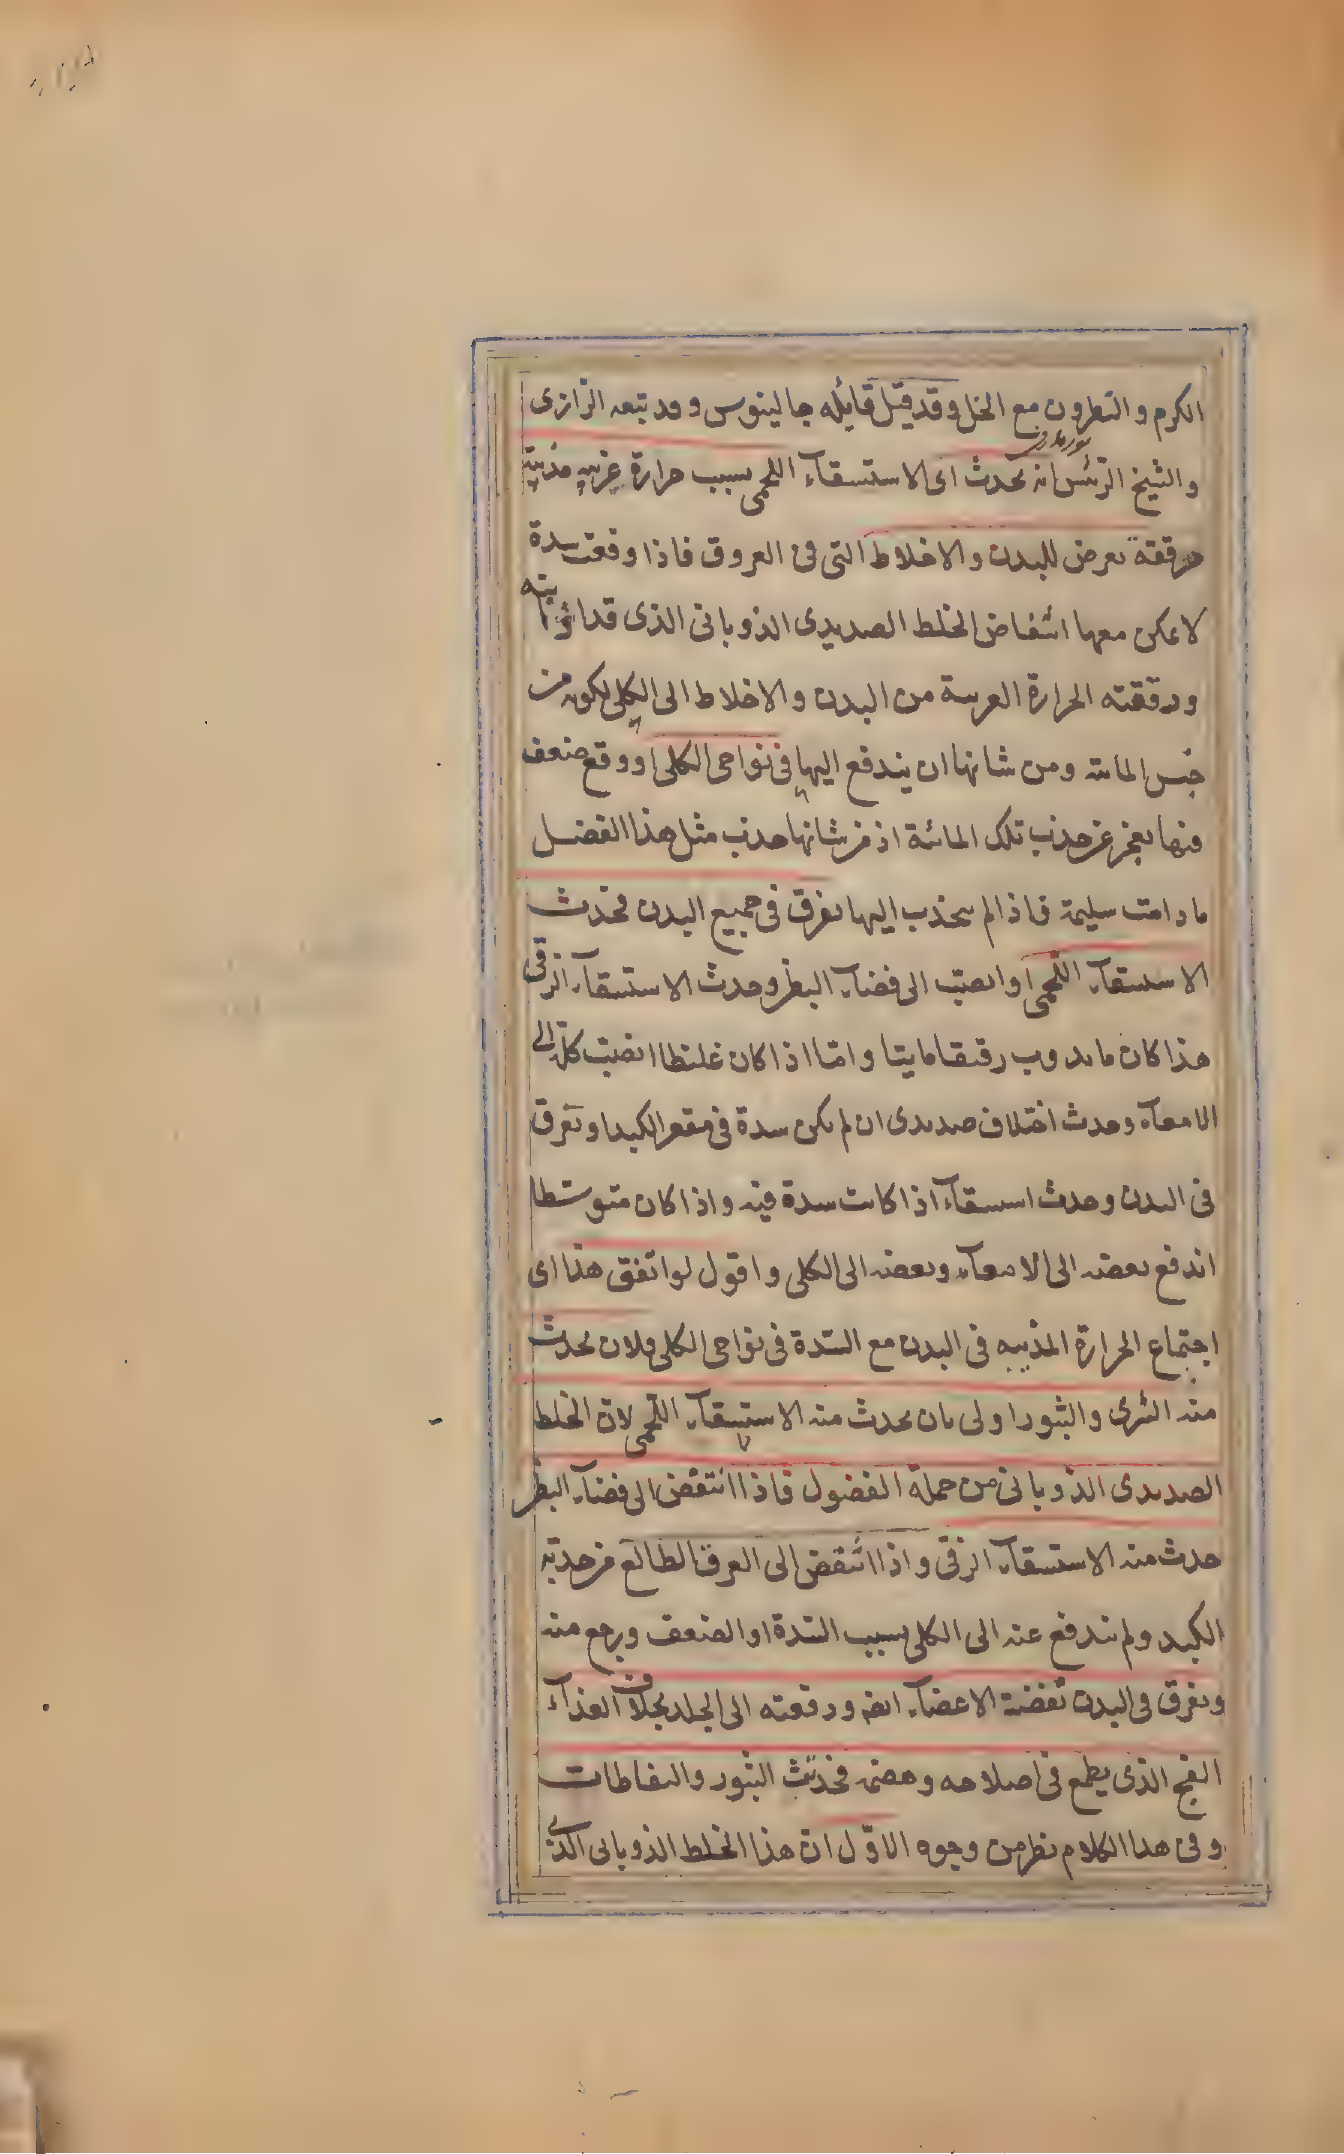 الكرم و النطرون مع الخل و قد قيل قايله جالينوس و قد تبعه الرازى
و الشيخ الرئيس انه يحدث اى الاستسقاء اللحمى بسبب حرارة غريبه مذيبة
مرققة تعرض للبدن و الاخلاط التى فى العروق فاذا وقعت سدة
لا يمكن معها انتفاض الخلط الصديدى الذوبانى الذى قد اذابته
و رققته الحرارة الغريبة من البدن و الاخلاط الى الكلى لكونه من
جنس المائية و من شانها ان يندفع اليها فى نواحى الكلى او وقع ضعف
فيها يعجز عن جذب تلك المائية اذ من شانها جذب مثل هذا الفضل
ما دامت سليمة فاذا لم ينجذب اليها تفرق فى جميع البدن فحدث
الاستسقاء اللحمى او انصب الى فضاء البطن و حدث الاستسقاء الزقى
هذا كان ما يذوب رقيقا مايتا و امّا اذا كان غليظا انصبّ كله الى
الامعاء و حدث اختلاف صديدى ان لم يكن سدة فى مقعر الكبد او تفرق
فى البدن و حدث استسقاء اذا كانت سدة فيه و اذا كان متوسطا
اندفع بعضه الى الامعاء و بعضه الى الكلى و اقول لو اتفق هذا اى
اجتماع الحرارة المذيبه فى البدن مع السّدة فى نواحى الكلى فلان يحدث
منه الشرى و البثور اولى بان يحدث منه الاستسقاء اللحمى لان الخلط
الصديدى الذوبانى من جملة الفضول فاذا انتقض الى فضاء البطن
حدث منه الاستسقاء الزقى و اذا انتقض الى العرق الطالع من حدبة
الكبد و لم يندفع عنه الى الكلى بسبب السّدة او الضعف و رجع منه
و تفرق فى البدن نفضته الاعضاء ايضا و دفعته الى الجلد بخلاف الغذاء
الفج الذى يطمع فى اصلاحه و هضمه فحدثت البثور و النفاطات
و فى هذا الكلام نظر من وجوه الاوّل ان هذا الخلط الذوبانى الذى